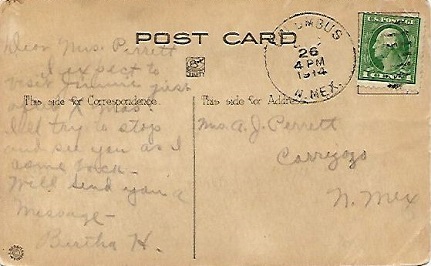 POST CARD
COLUMBUS
26
4 PM
1914
N. MEX.
U.S. POSTAGE
This side for Correspondence
This side for Address
Dear Mrs. Perrett
I expect to
visit Jimmie first
I'll try to stop
and see you as I
come back –
Will send you a
message –
Bertha H.
Mrs. A. J. Perrett
Carrizozo
N. Mex